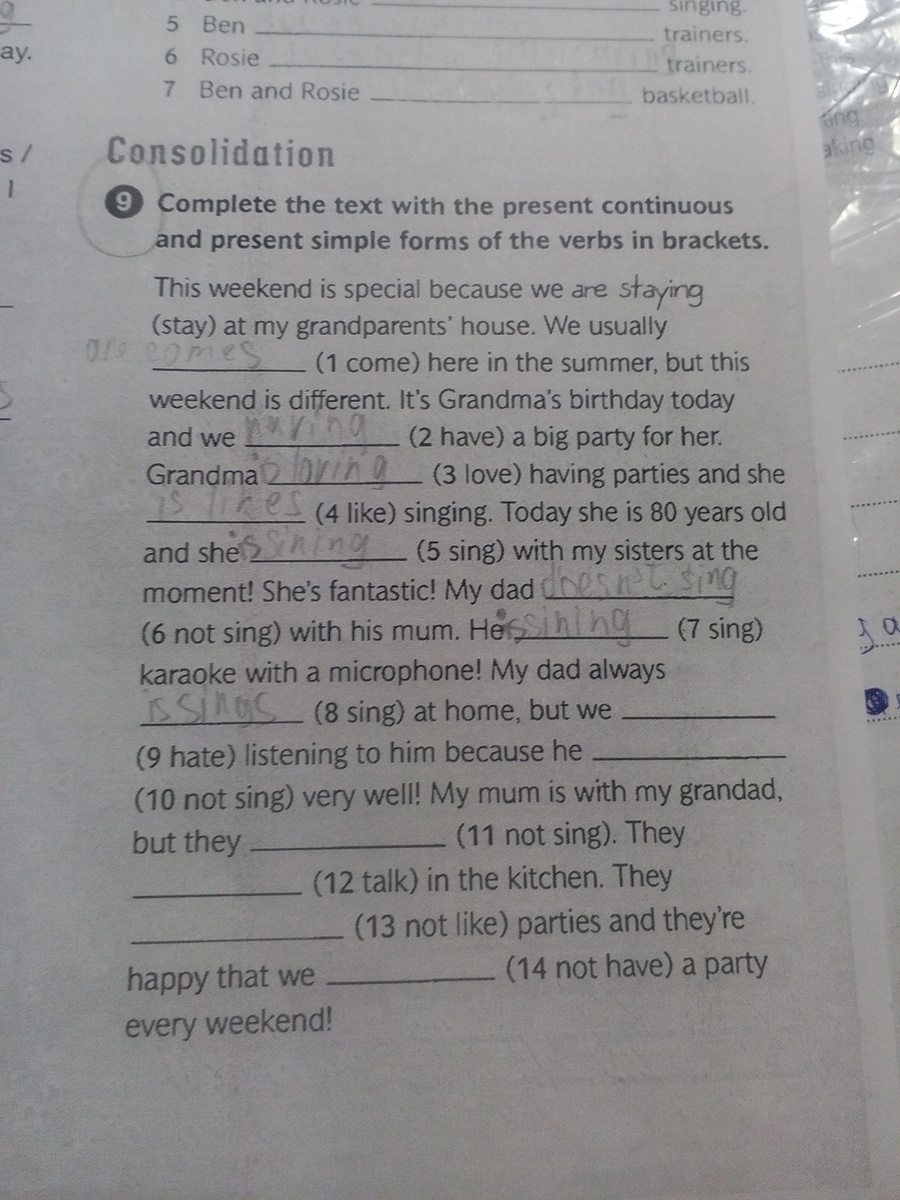 singing.
5 Ben ____ trainers.
ay.
6 Rosie ____ trainers.
7 Ben and Rosie ____ basketball.
s /
Consolidation
ting
aking
9 Complete the text with the present continuous
and present simple forms of the verbs in brackets.
This weekend is special because we are staying
(stay) at my grandparents' house. We usually
are comes (1 come) here in the summer, but this
weekend is different. It's Grandma's birthday today
and we having (2 have) a big party for her.
Grandma's loving (3 love) having parties and she
is likes (4 like) singing. Today she is 80 years old
and she's sining (5 sing) with my sisters at the
moment! She's fantastic! My dad doesn't sing
(6 not sing) with his mum. He's sining (7 sing)
karaoke with a microphone! My dad always
is sings (8 sing) at home, but we ____
(9 hate) listening to him because he ____
(10 not sing) very well! My mum is with my grandad,
but they ____ (11 not sing). They
____ (12 talk) in the kitchen. They
____ (13 not like) parties and they're
happy that we ____ (14 not have) a party
every weekend!